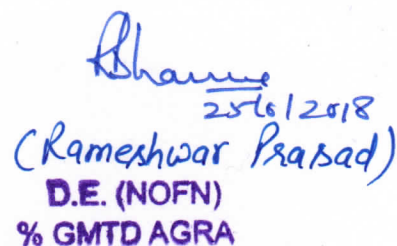 25/6/2018
(Rameshwar Prasad)
D.E. (NOFN)
% GMTD AGRA